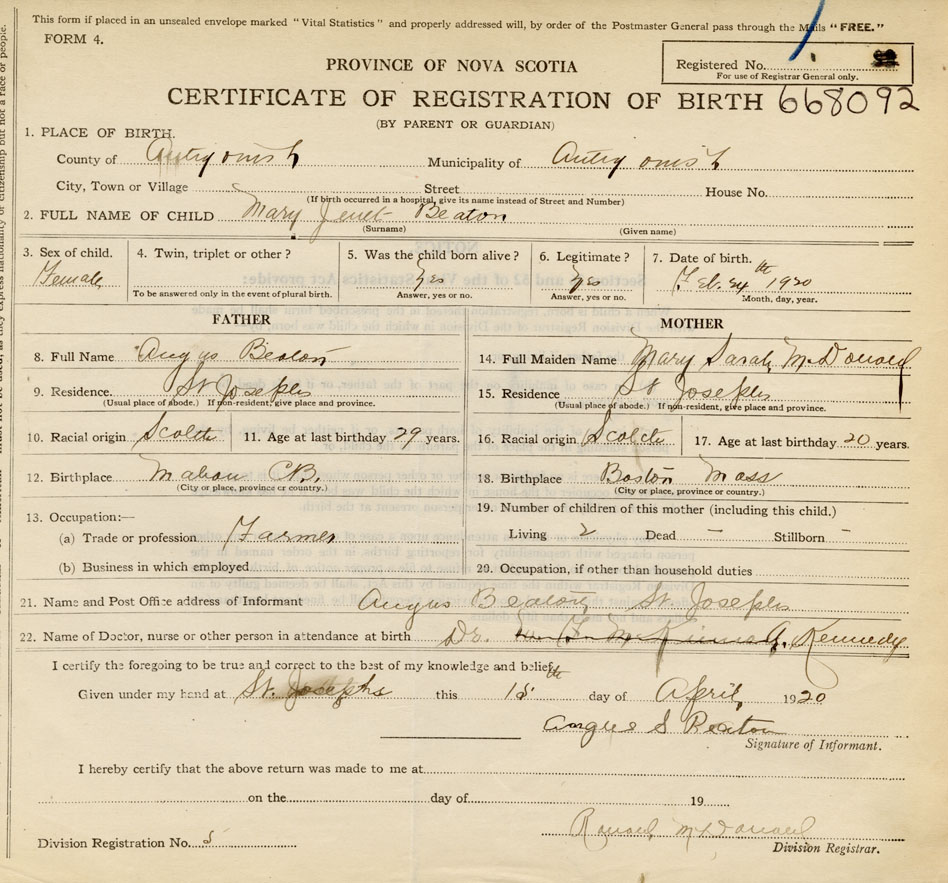 This form if placed in an unsealed envelope marked "Vital Statistics" and properly addressed will, by order of the Postmaster General pass through the Mails "FREE."
FORM 4.
Registered No.
For use of Registrar General only.
PROVINCE OF NOVA SCOTIA
CERTIFICATE OF REGISTRATION OF BIRTH 668092
(BY PARENT OR GUARDIAN)
1. PLACE OF BIRTH.
County of Antigonish Municipality of Antigonish
City, Town or Village Street House No.
(If birth occurred in a hospital, give its name instead of Street and Number)
2. FULL NAME OF CHILD Mary Jenet Beaton
(Surname) (Given name)
3. Sex of child. 4. Twin, triplet or other? 5. Was the child born alive? 6. Legitimate? 7. Date of birth.
Female Yes Yes Feb. 24th 1920
To be answered only in the event of plural birth. Answer, yes or no. Answer, yes or no. Month, day, year.
FATHER MOTHER
8. Full Name Angus Beaton 14. Full Maiden Name Mary Sarah McDonald
9. Residence St Josephs 15. Residence St Josephs
(Usual place of abode.) If non-resident, give place and province. (Usual place of abode.) If non-resident, give place and province.
10. Racial origin Scotch 11. Age at last birthday 29 years. 16. Racial origin Scotch 17. Age at last birthday 20 years.
12. Birthplace Mabou CB. 18. Birthplace Boston Mass
(City or place, province or country.) (City or place, province or country.)
13. Occupation:— 19. Number of children of this mother (including this child.)
(a) Trade or profession Farmer Living 2 Dead – Stillborn –
(b) Business in which employed 20. Occupation, if other than household duties
21. Name and Post Office address of Informant Angus Beaton, St Josephs
22. Name of Doctor, nurse or other person in attendance at birth Dr. A. Kennedy
I certify the foregoing to be true and correct to the best of my knowledge and belief.
Given under my hand at St. Josephs this 15th day of April, 1920
Angus S Beaton
Signature of Informant.
I hereby certify that the above return was made to me at
on the day of 19
Ronald McDonald
Division Registration No. 5 Division Registrar.